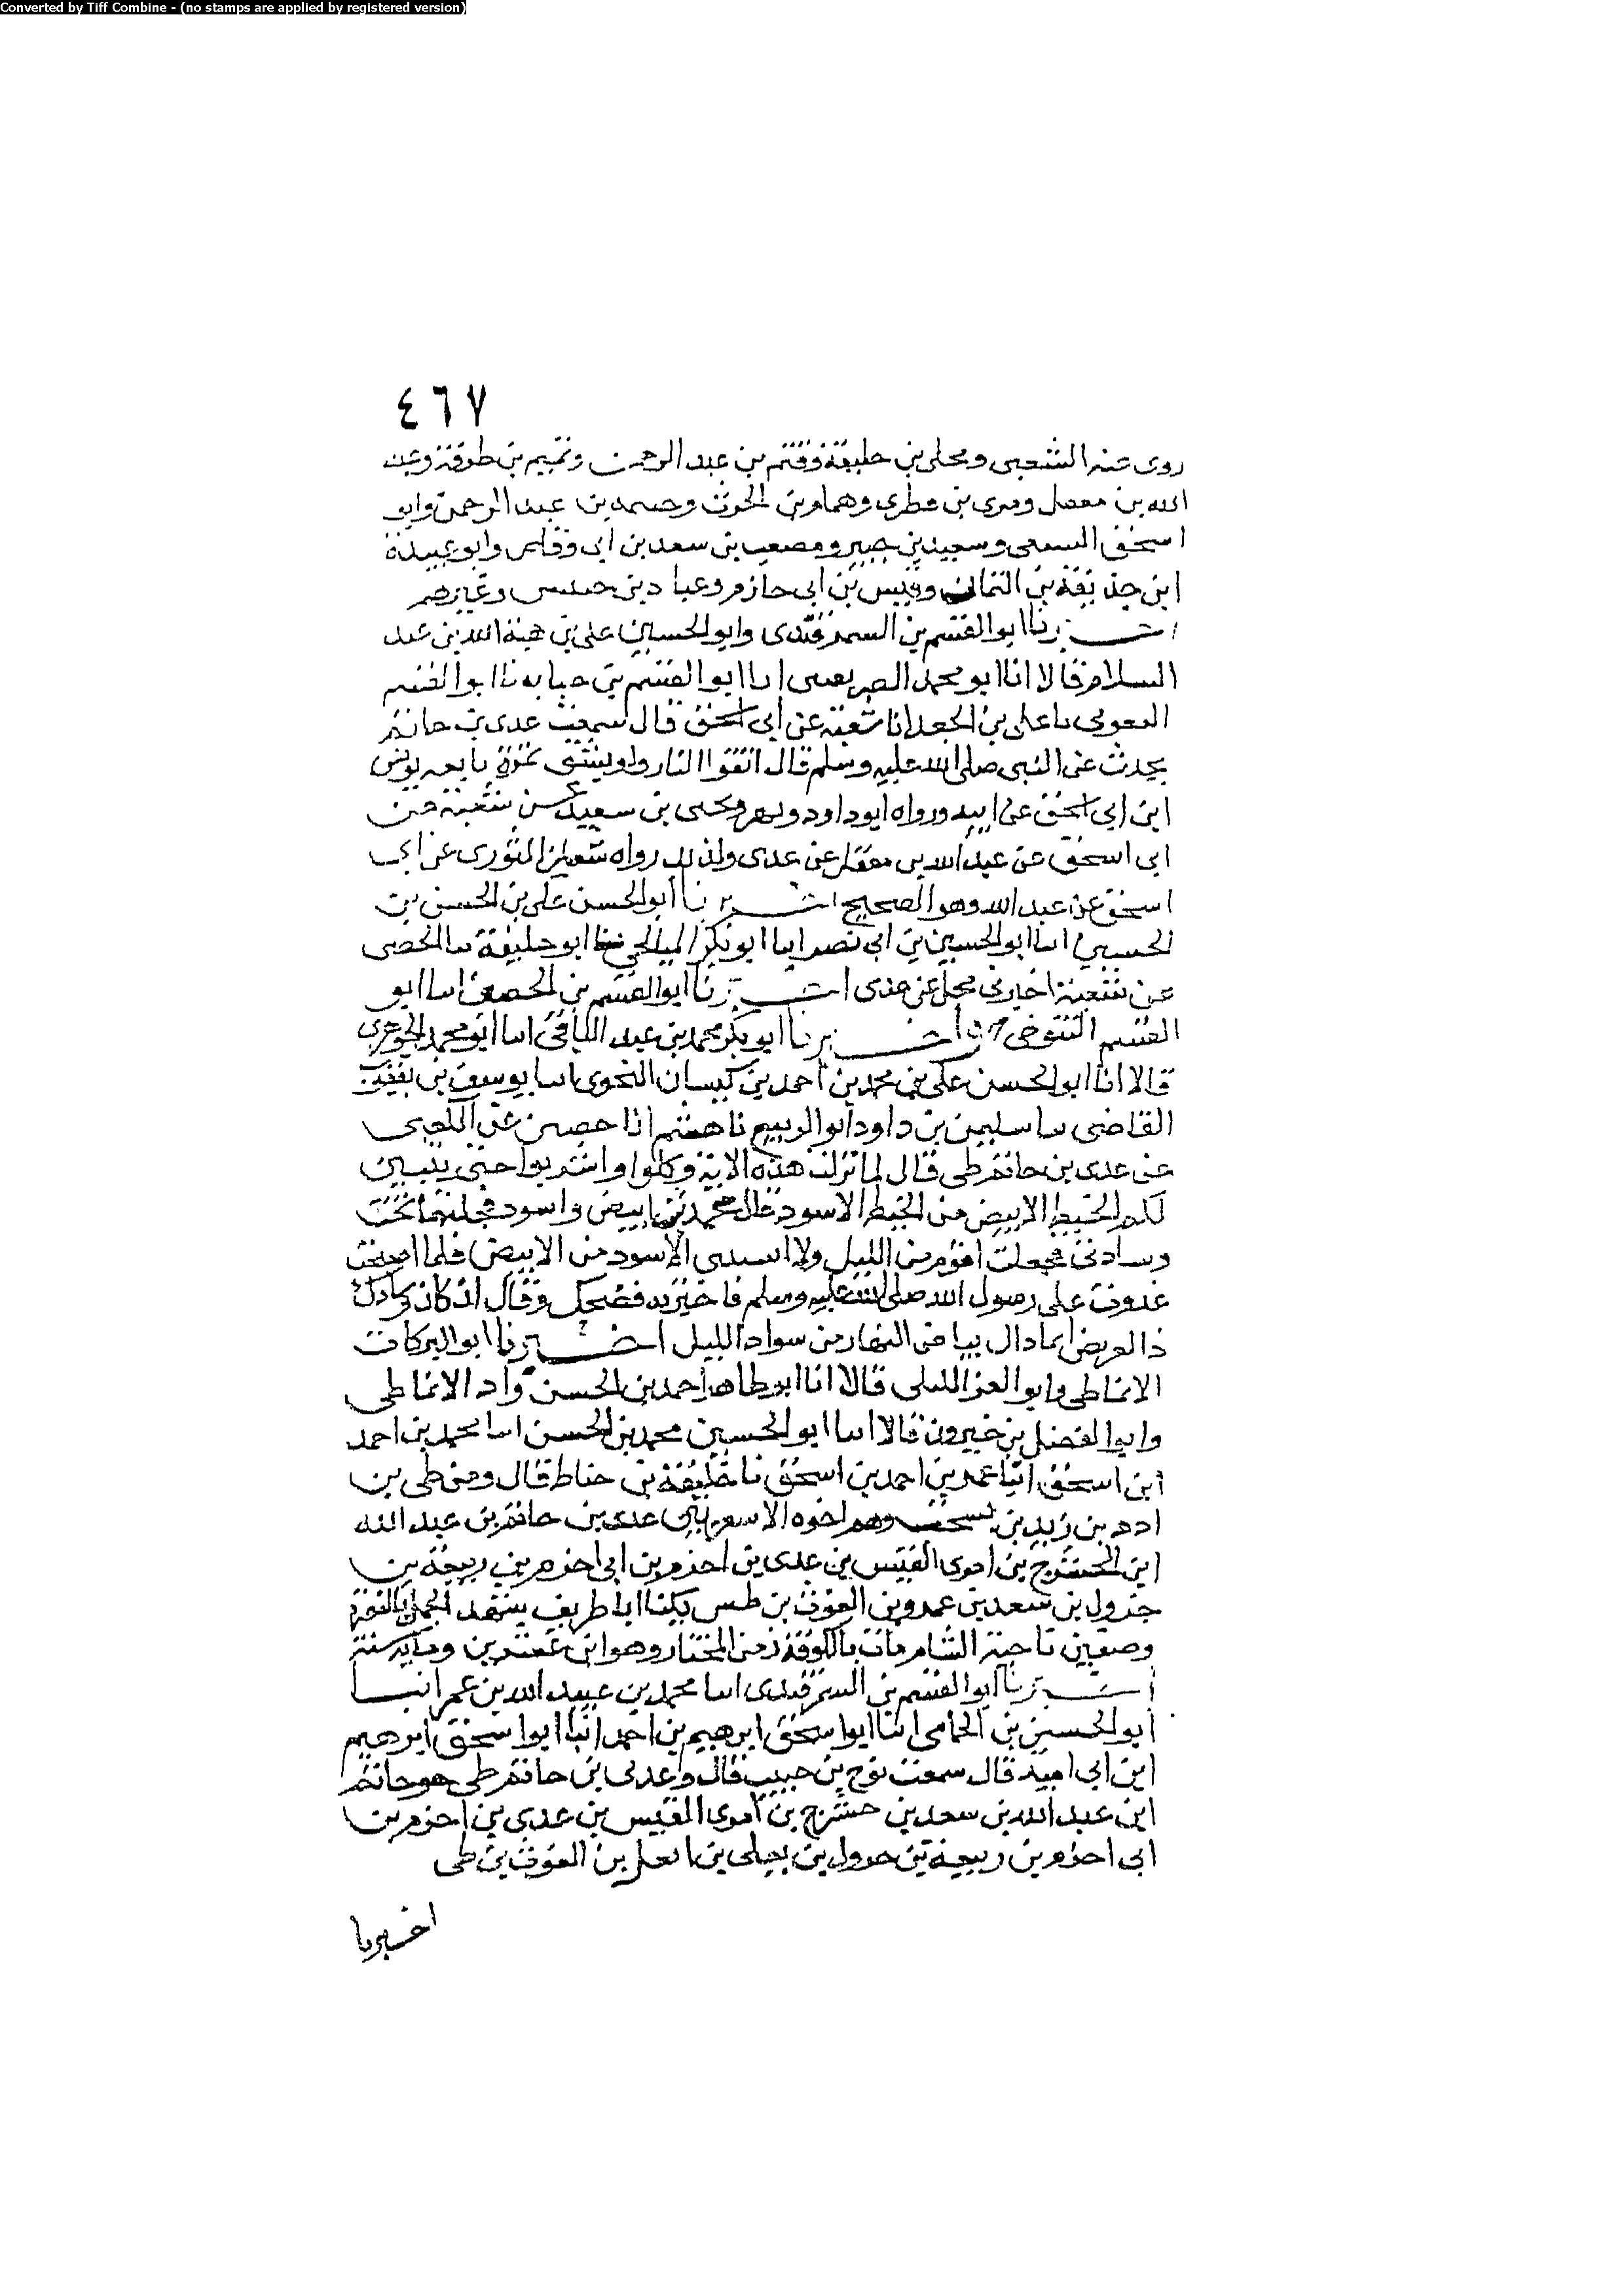 Converted by Tiff Combine - (no stamps are applied by registered version)
٤٦٧
روى عنه الشعبي ومحل بن خليفة وقثم بن عبد الرحمن وتميم بن طرفة وعبد
الله بن معقل ومرى بن قطرى وهمام بن الحرث وحسد بن عبد الرحمن وابو
اسحق السبيعى وسعيد بن جبير ومصعب بن سعد بن ابى وقاص وابو عبيدة
ابن حذيفة بن اليمان وقيس بن ابى حازم وعباد بن حبيش وغيرهم
اخبرنا ابو القسم بن السمرقندى وابو الحسين على بن هبة الله بن عبد
السلام قالا انا ابو محمد الصريفينى انا ابو القسم بن حبابه نا ابو القسم
البغوى نا على بن الجعد انا شعبة عن ابى اسحق قال سمعت عدى بن حاتم
يحدث عن النبى صلى الله عليه وسلم قال اتقوا النار ولو بشق تمرة تابعه يونس
ابن ابى اسحق عن ابيه ورواه ابو داود ويحيى بن سعيد عن شعبة عن
ابى اسحق عن عبد الله بن معقل عن عدى وكذلك رواه سفين الثورى عن ابى
اسحق عن عبد الله وهو الصحيح اخبرنا ابو الحسن على بن الحسن بن
الحسين انا ابو الحسين بن ابى نصر انا ابو بكر الميانجى نا ابو خليفة نا الحوضى
عن شعبة اخبرنى محل عن عدى اخبرنا ابو القسم بن الحصين انا ابو
القسم التنوخى ح واخبرنا ابو بكر محمد بن عبد الباقى انا ابو محمد الجوهرى
قالا انا ابو الحسن على بن محمد بن احمد بن كيسان النحوى نا يوسف بن يعقوب
القاضى نا سليمن بن داود ابو الربيع نا هشيم انا حصين عن الشعبى
عن عدى بن حاتم طى قال لما نزلت هذه الاية وكلوا واشربوا حتى يتبين
لكم الخيط الابيض من الخيط الاسود قال عمدت ابيض واسود فجعلتهما تحت
وسادتى فجعلت اقوم من الليل ولا استبين الاسود من الابيض فلما اصبحت
غدوت على رسول الله صلى الله عليه وسلم فاخبرته فضحك وقال ان كان وسادك
ذا لعريض انما ذاك بياض النهار من سواد الليل اخبرنا ابو البركات
الانماطى وابو العز الكيلى قالا انا ابو طاهر احمد بن الحسن زاد الانماطى
وابو الفضل بن خيرون قالا انا ابو الحسين محمد بن الحسن انا محمد بن احمد
ابن اسحق انبا عمر بن احمد بن اسحق نا خليفة بن خياط قال ومن طى بن
ادد بن زيد بن يشجب وهم اخوه الاشعر عدى بن حاتم بن عبد الله
ابن الحشرج بن امرى القيس بن عدى بن اخزم بن ابى اخزم بن ربيعة بن
جرول بن سعد بن عمرو بن الغوث بن طى يكنا ابا طريف شهد الجمل بالبصرة
وصفين ناحية الشام مات بالكوفة زمن المختار وهو ابن عشرين وماية سنة
اخبرنا ابو القسم بن السمرقندى انا محمد بن عبيد الله بن عمر انبا
ابو الحسين بن الحمامى انا ابو اسحق ابرهيم بن احمد انبا ابو اسحق ابرهيم
ابن ابى امية قال سمعت نوح بن حبيب قال وعدى بن حاتم طى هو حاتم
ابن عبد الله بن سعد بن حشرج بن امرى القيس بن عدى بن اخزم بن
ابى اخزم بن ربيعة بن جرول بن ثعل بن الغوث بن طى
اخبرنا